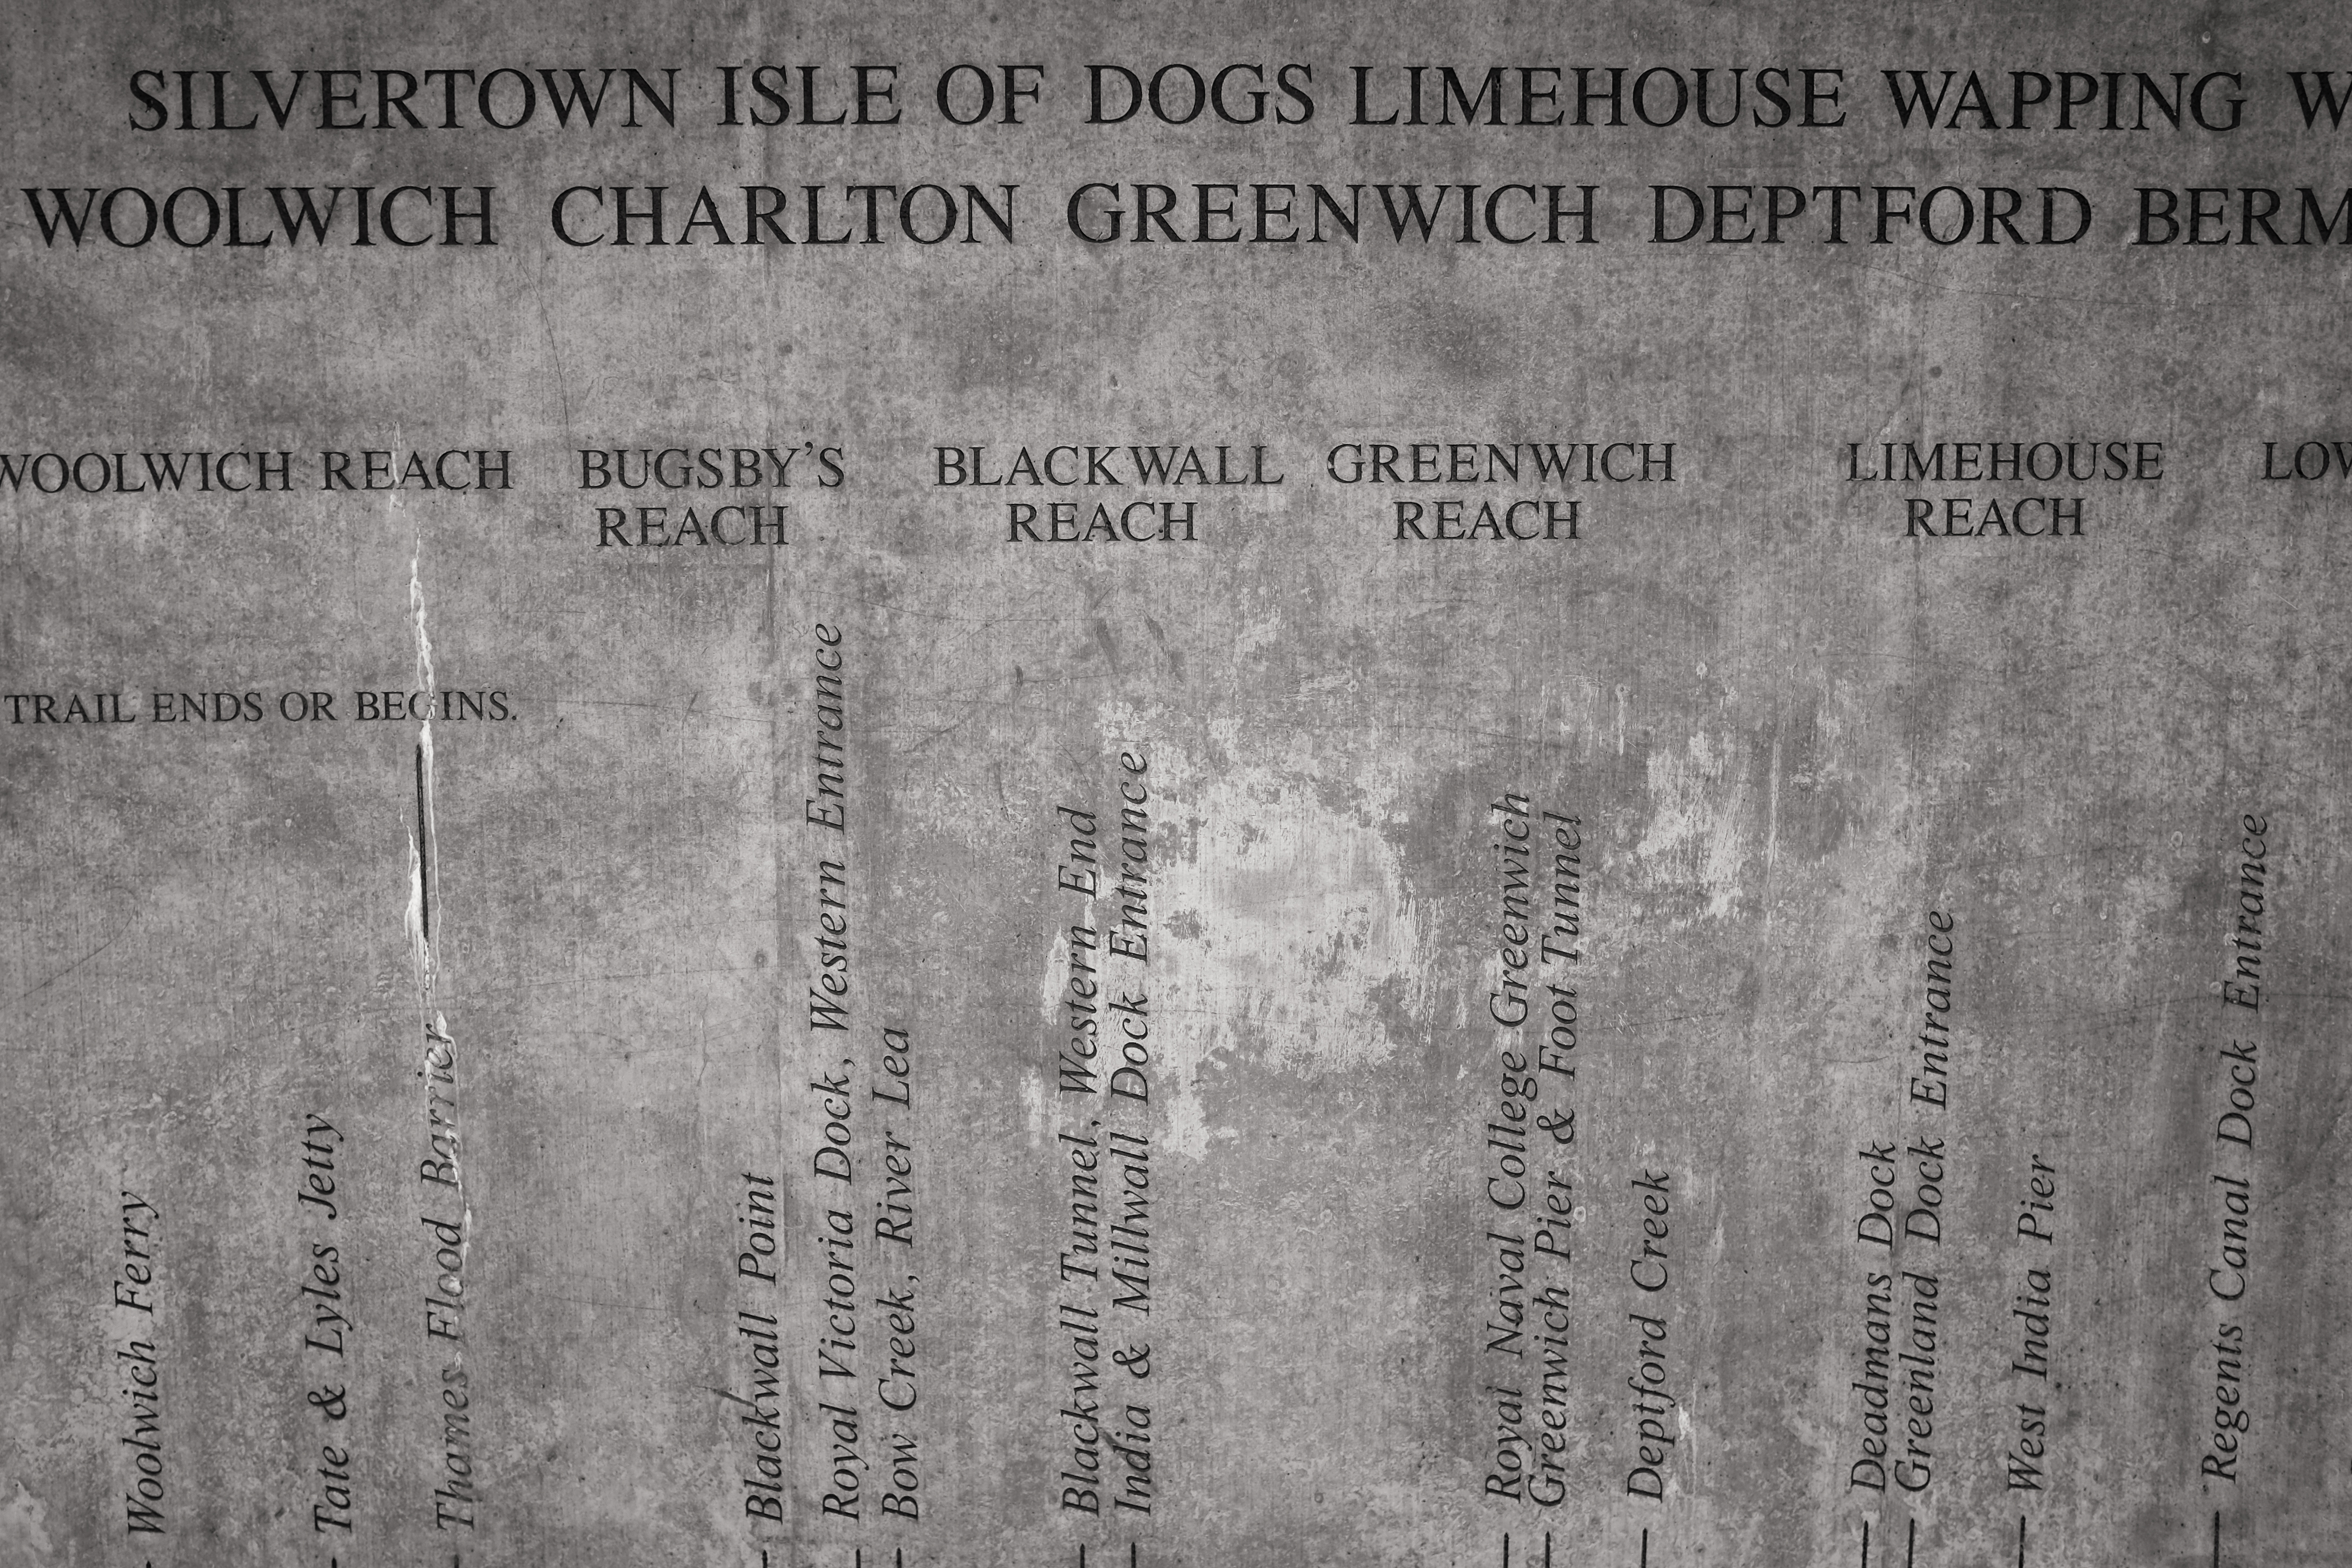 SILVERTOWN ISLE OF DOGS LIMEHOUSE WAPPING W
WOOLWICH CHARLTON GREENWICH DEPTFORD BERM
WOOLWICH REACH
BUGSBY'S
REACH
BLACKWALL
REACH
GREENWICH
REACH
LIMEHOUSE
REACH
LOW
TRAIL ENDS OR BEGINS.
Woolwich Ferry
Tate & Lyles Jetty
Thames Flood Barrier
Blackwall Point
Royal Victoria Dock, Western Entrance
Bow Creek, River Lea
Blackwall Tunnel, Western End
India & Millwall Dock Entrance
Royal Naval College Greenwich
Greenwich Pier & Foot Tunnel
Deptford Creek
Deadmans Dock
Greenland Dock Entrance
West India Pier
Regents Canal Dock Entrance